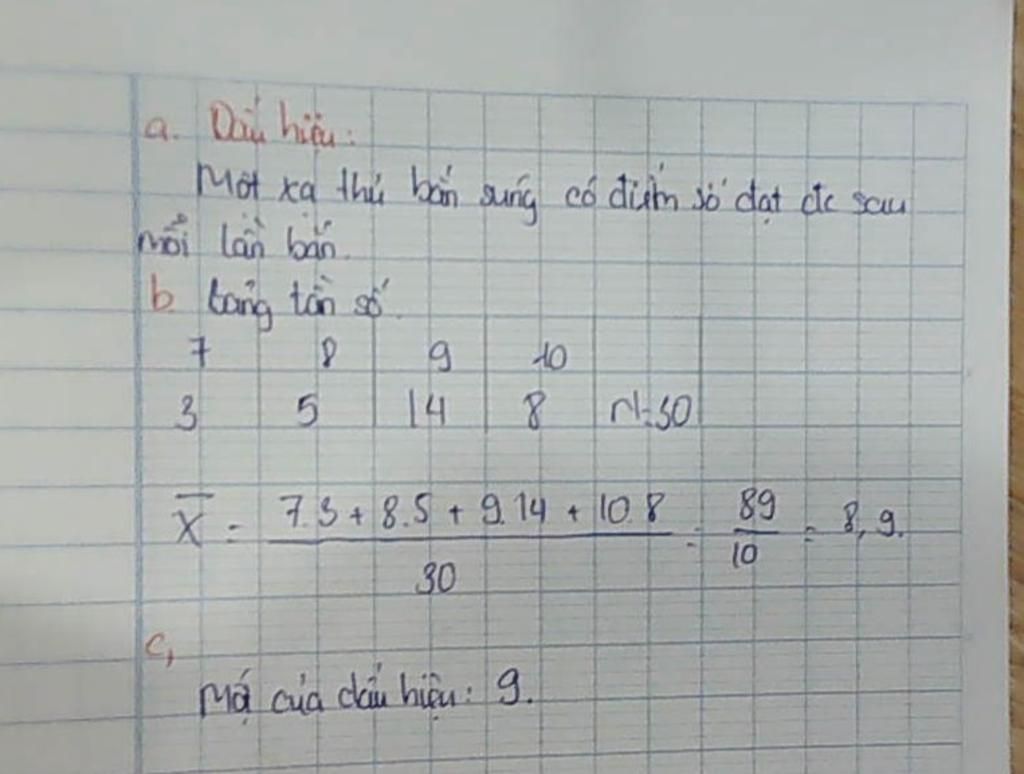 a. Dấu hiệu:
Một xạ thủ bắn súng có điểm số đạt đc sau
mỗi lần bắn.
b. bảng tần số.
7 8 9 10
3 5 14 8 N=30
X̄ = (7.3 + 8.5 + 9.14 + 10.8)/30 = 89/10 = 8,9.
c,
Mố của dấu hiệu: 9.